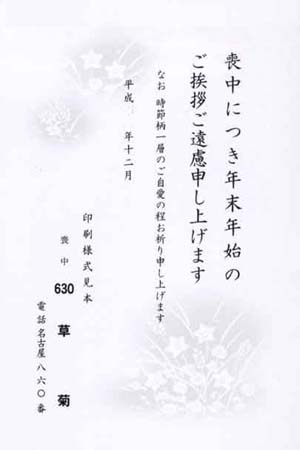 喪中につき年末年始の
ご挨拶ご遠慮申し上げます
なお 時節柄一層のご自愛の程お祈り申し上げます
平成　年十二月
印刷様式見本
喪中
630 草菊
電話名古屋八六〇番